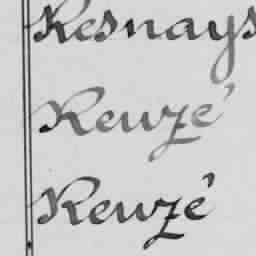 Resnays
Rewzé
Rewzé